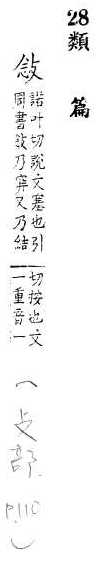 28類 篇
敜
諾叶切說文塞也引
周書敜乃穽又乃結
切按也文
一重音一
(攴部 P.110)